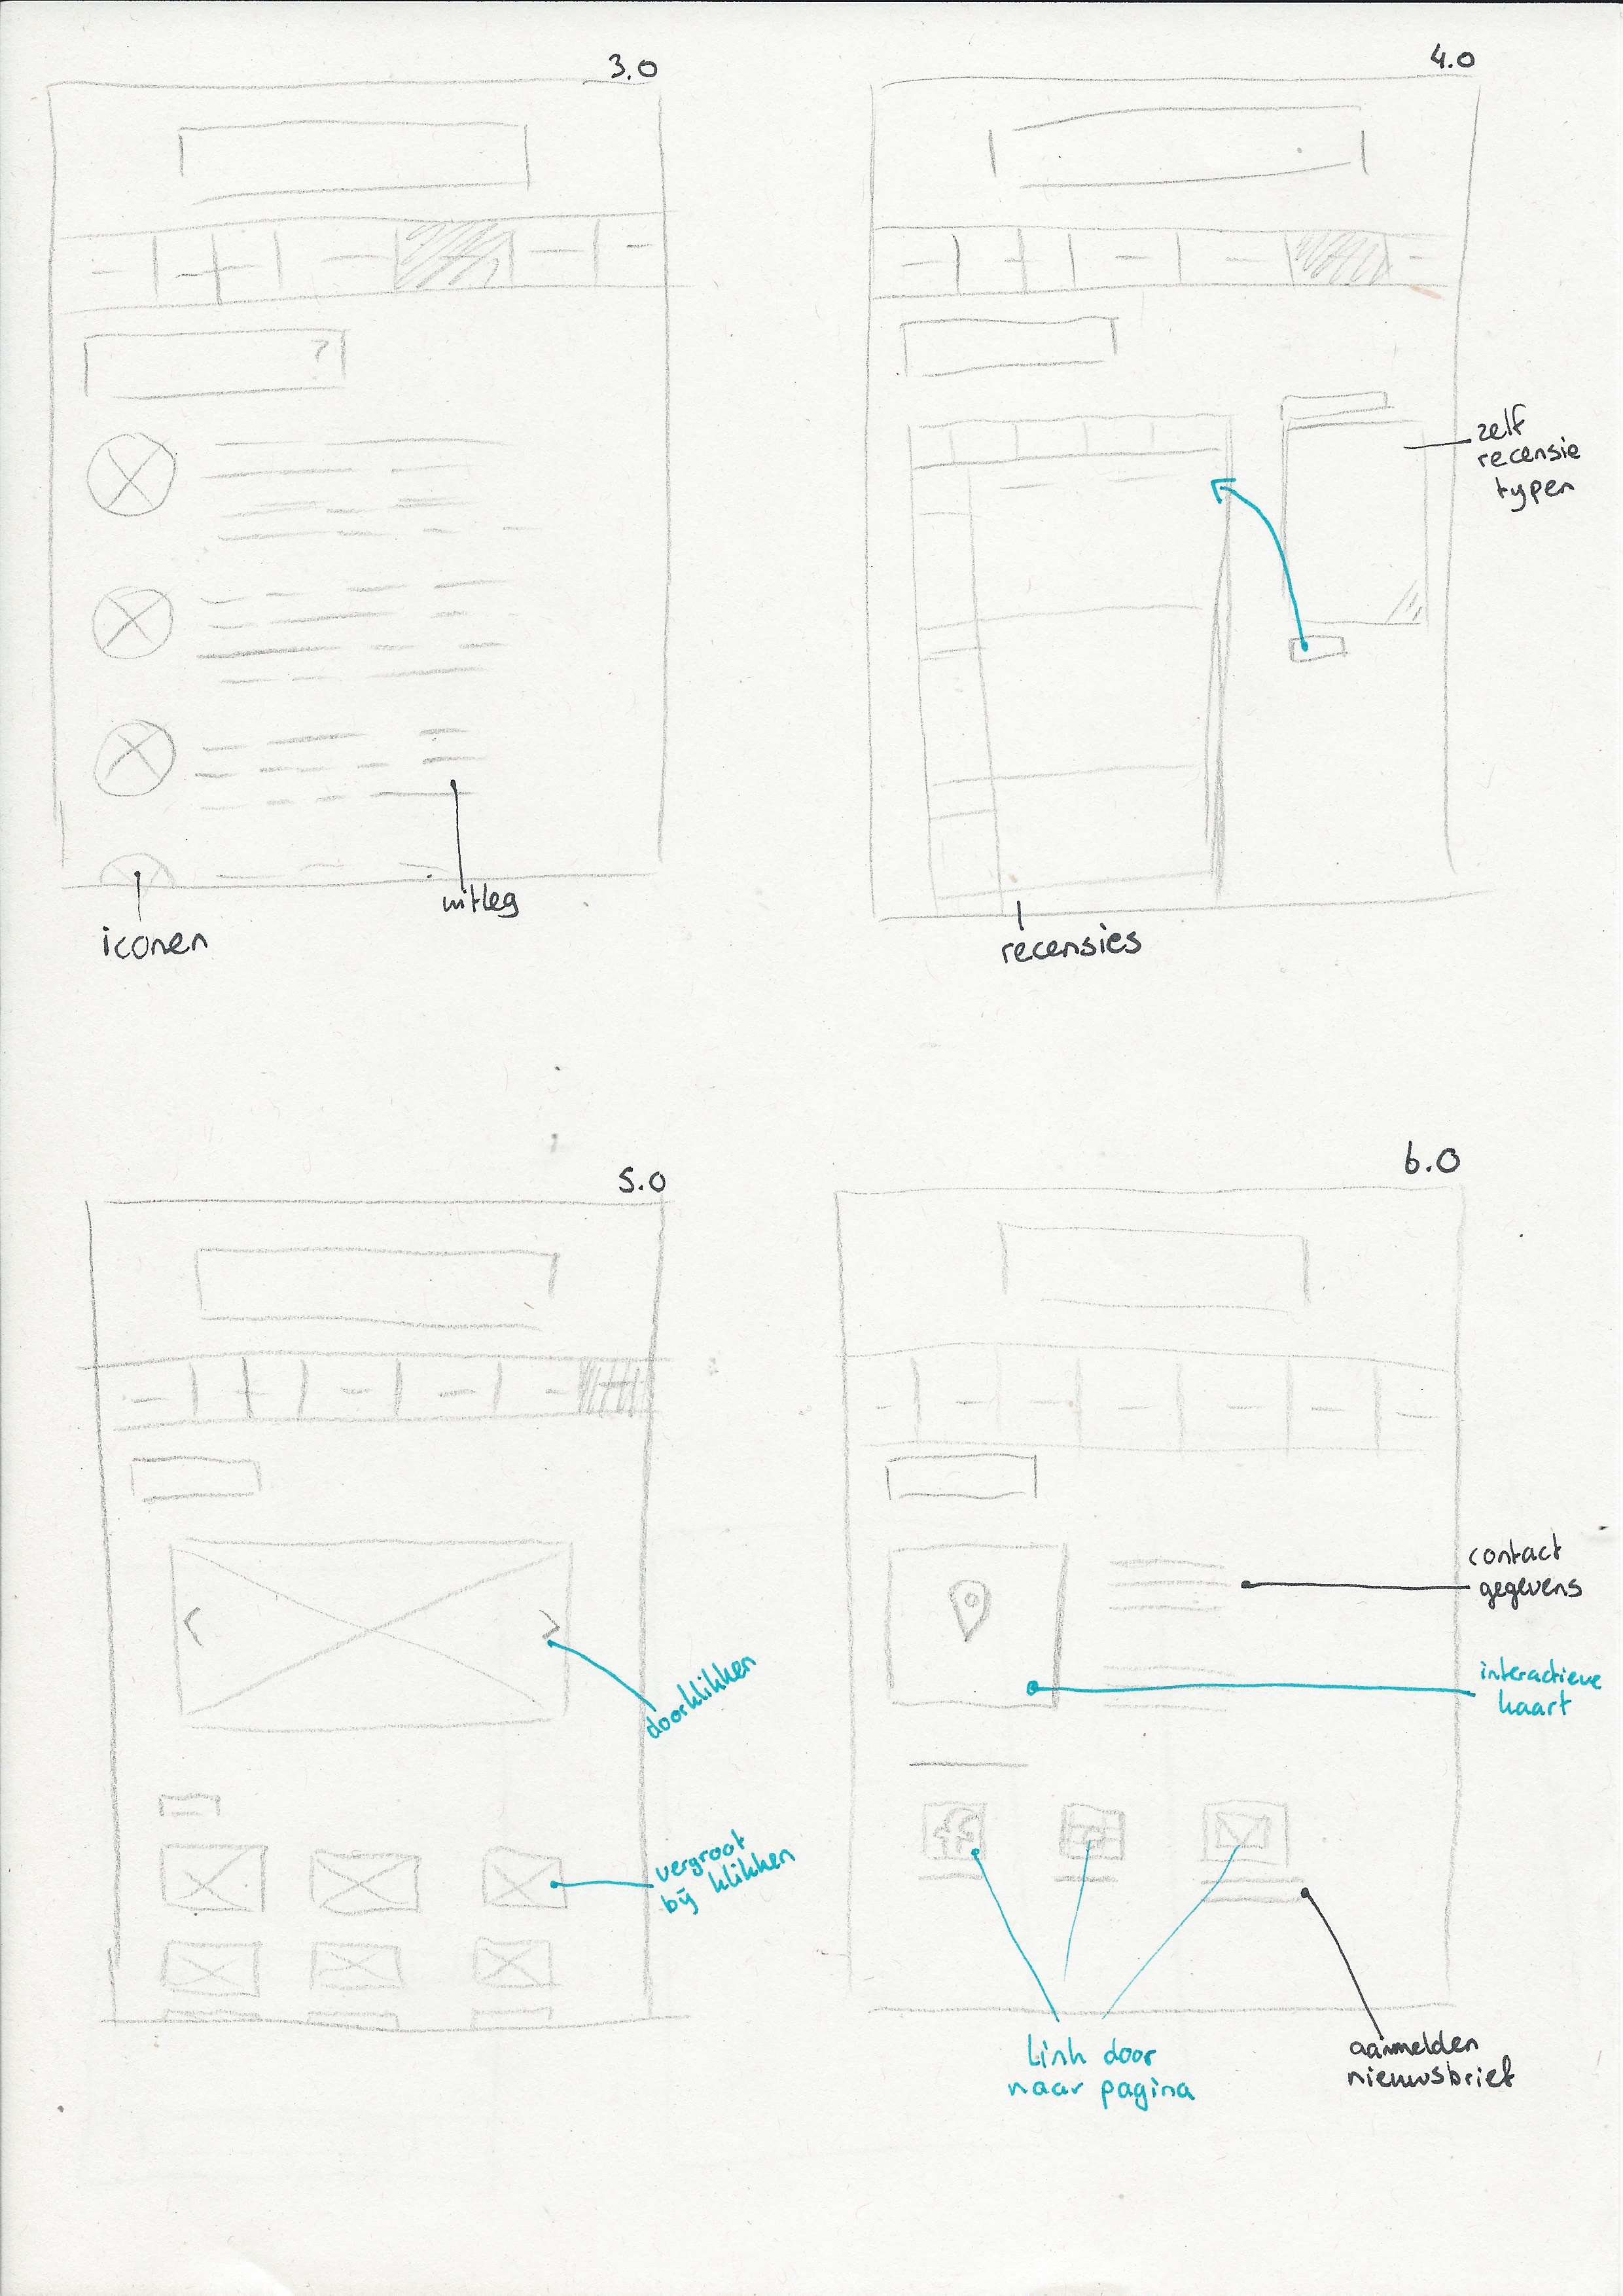 3.0
?
uitleg
iconen
4.0
zelf
recensie
typen
recensies
5.0
doorklikken
vergroot
bij klikken
6.0
contact
gegevens
interactieve
kaart
f
Link door
naar pagina
aanmelden
nieuwsbrief